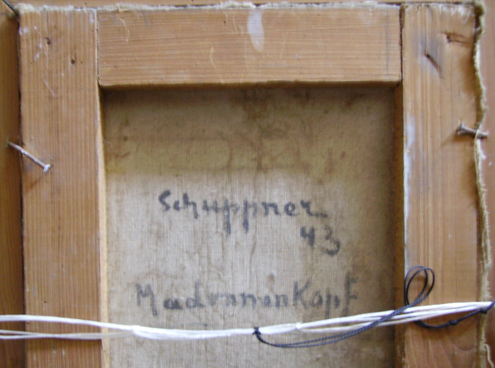 Schuppner
43
Madonnenkopf